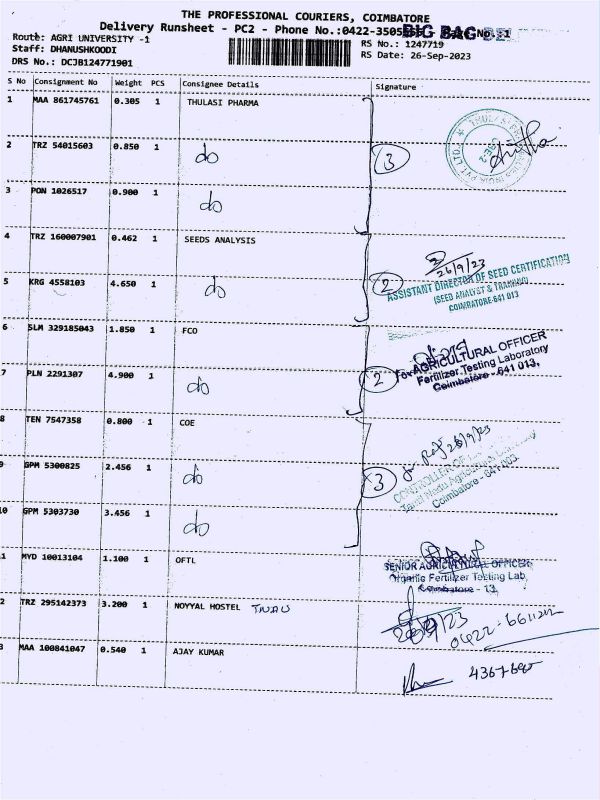 THE PROFESSIONAL COURIERS, COIMBATORE
Delivery Runsheet - PC2 - Phone No.:0422-3505 BIG BAG No.:1
Route: AGRI UNIVERSITY -1
RS No.: 1247719
Staff: DHANUSHKOODI
RS Date: 26-Sep-2023
DRS No.: DCJB124771901
S No Consignment No Weight PCS Consignee Details Signature
1 MAA 861745761 0.305 1 THULASI PHARMA
2 TRZ 54015603 0.850 1 do 3
3 PON 1026517 0.900 1 do
4 TRZ 160007901 0.462 1 SEEDS ANALYSIS
26/9/23
5 KRG 4558103 4.650 1 do 2
ASSISTANT DIRECTOR OF SEED CERTIFICATION
(SEED ANALYST & TRAINING)
COIMBATORE-641 013
6 SLM 329185043 1.850 1 FCO
For AGRICULTURAL OFFICER
Fertilizer Testing Laboratory
Coimbatore - 641 013.
7 PLN 2291307 4.900 1 do 2
8 TEN 7547358 0.800 1 COE
26/9/23
9 GPM 5300825 2.456 1 do 3
CONTROLLER OF
Tamil Nadu Agricultural University
Coimbatore - 641 003
10 GPM 5303730 3.456 1 do
1 MYD 10013104 1.100 1 OFTL
SENIOR AGRICULTURAL OFFICER
Organic Fertilizer Testing Lab,
Coimbatore - 13
2 TRZ 295142373 3.200 1 NOYYAL HOSTEL TNAU
26/9/23
3 MAA 100841047 0.540 1 AJAY KUMAR